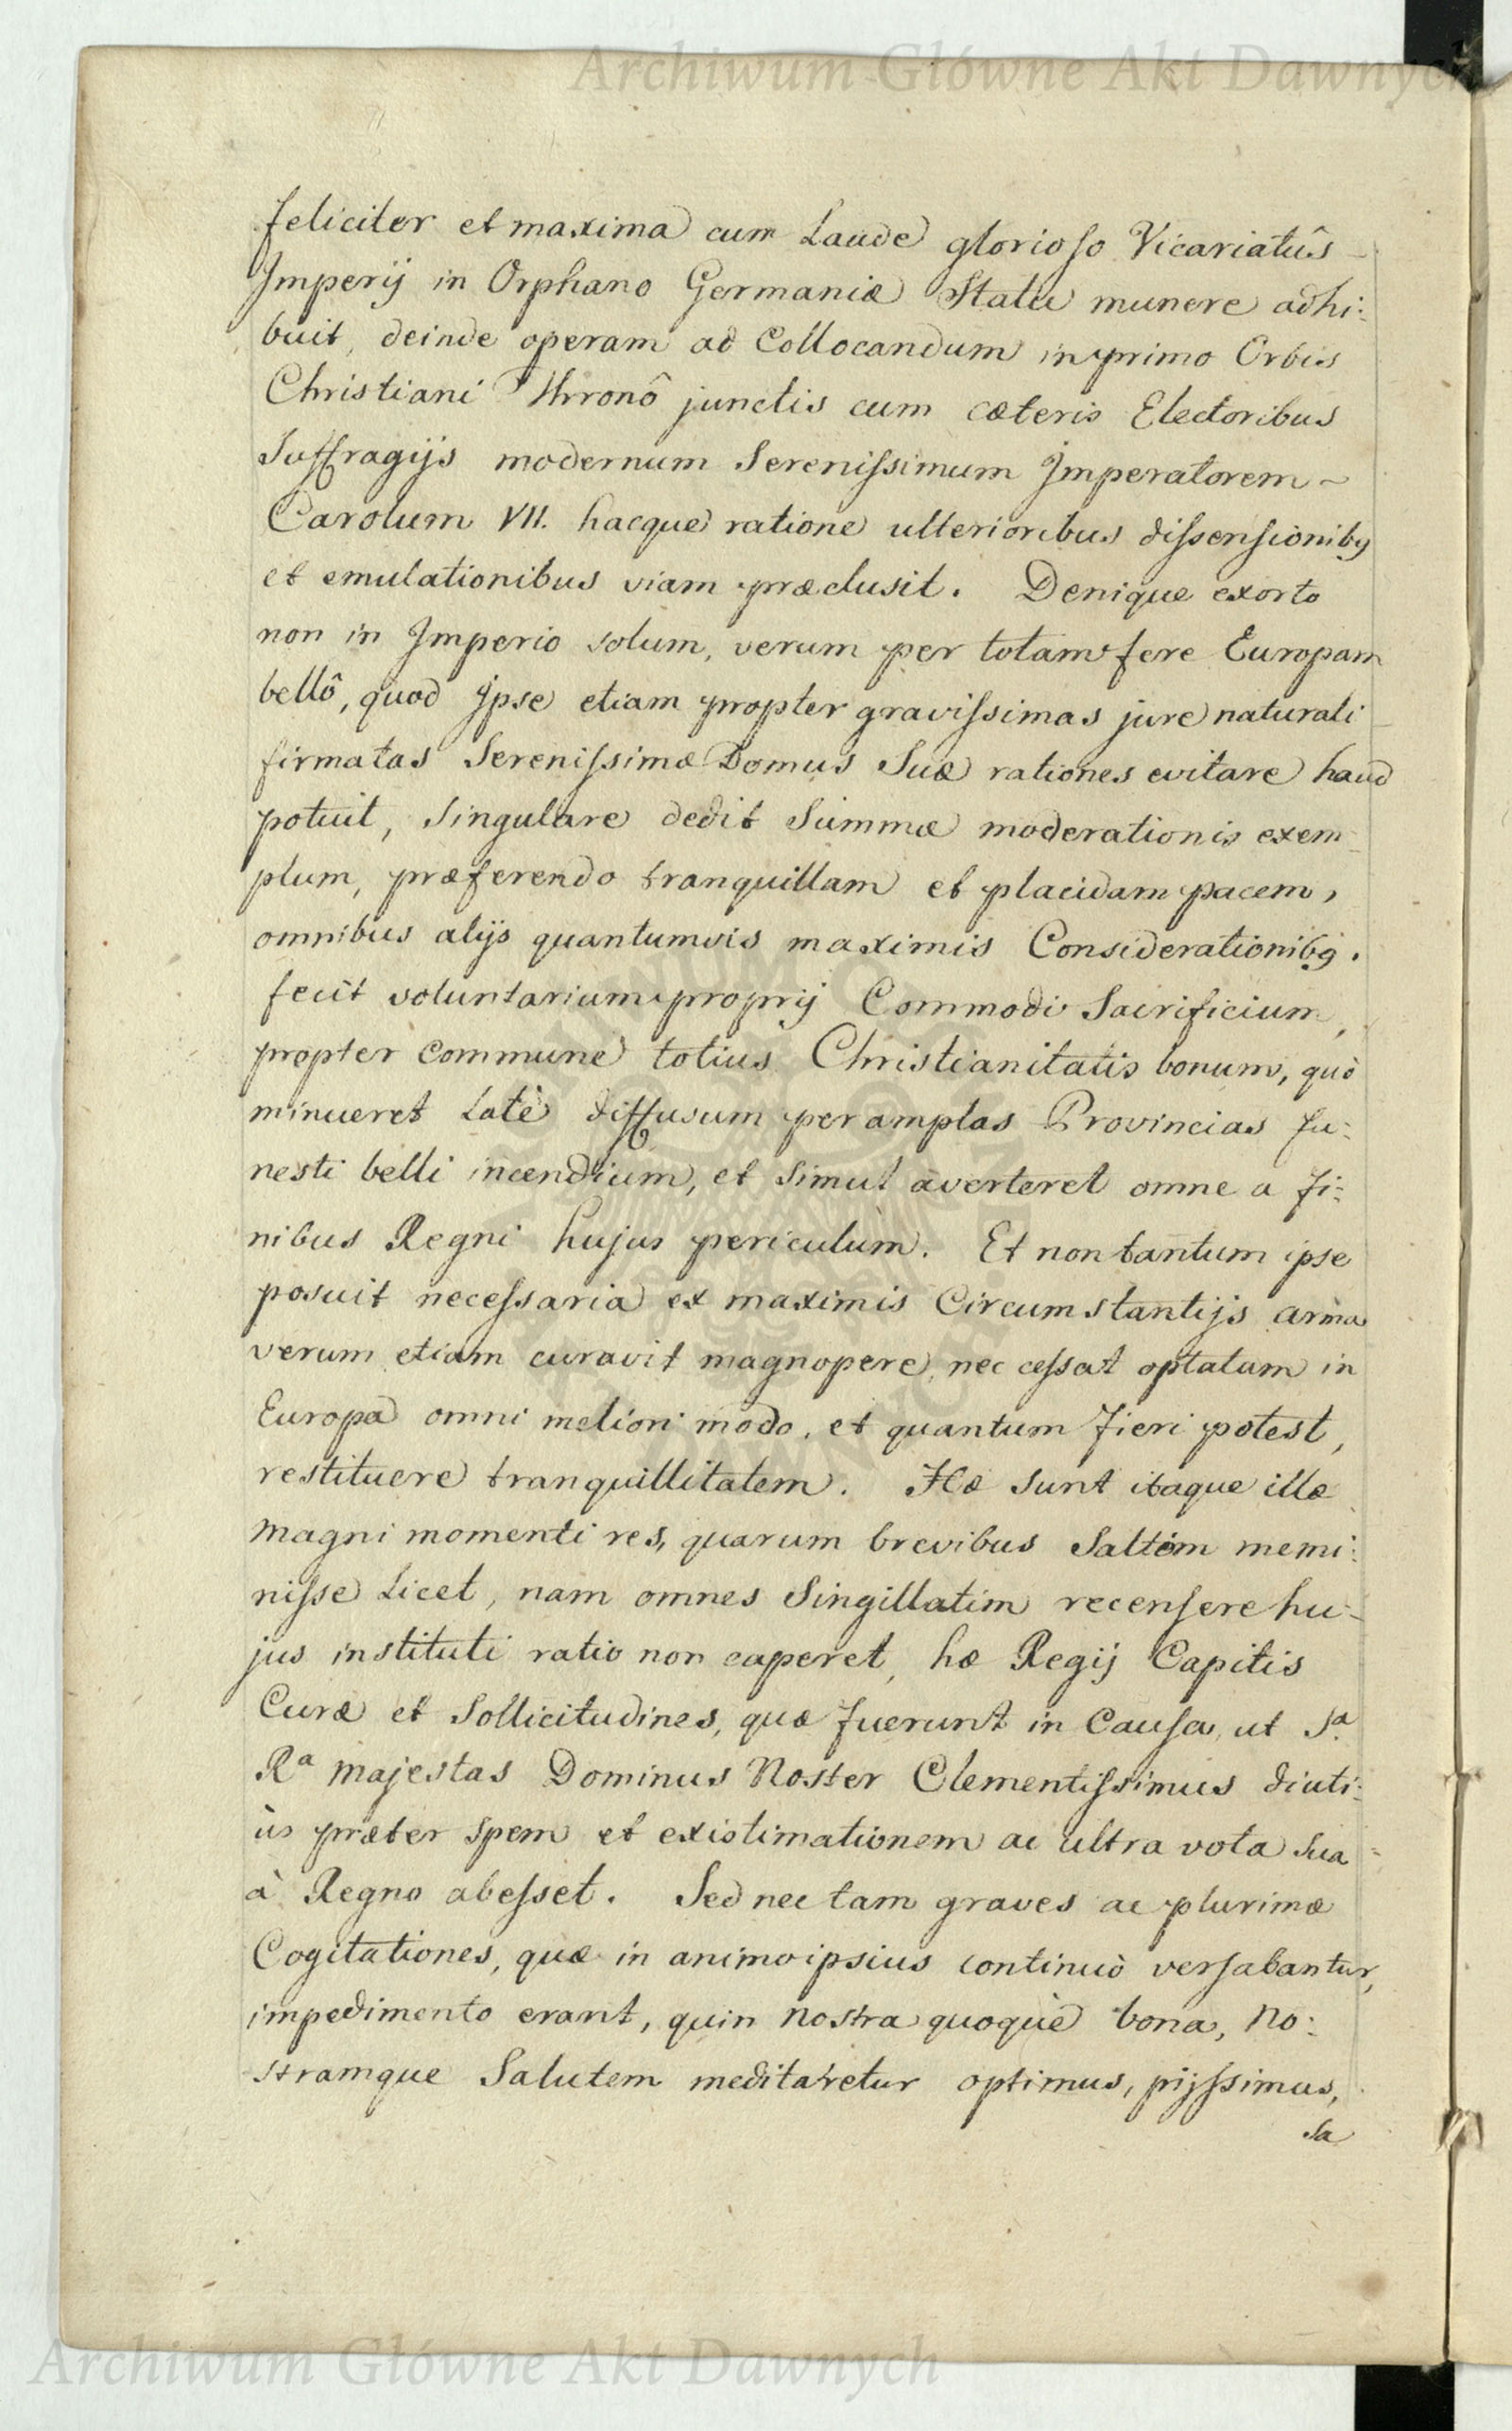 Archiwum Główne Akt Dawnych
feliciter et maxima cum Laude glorioso Vicariatûs
Imperij in Orphano Germaniæ Statu munere adhi:
buit, deinde operam ad Collocandum in primo Orbis
Christiani Thronô junctis cum cæteris Electoribus
Suffragijs modernum Serenissimum Imperatorem ~
Carolum VII. hacque ratione ulterioribus dissensionibg
et emulationibus viam præclusit. Denique exorto
non in Imperio solum, verum per totam fere Europam
bellô, quod Ipse etiam propter gravissimas jure naturali
firmatas Serenissimæ Domus Suæ rationes evitare haud
potuit, Singulare dedit Summæ moderationis exem
plum, præferendo tranquillam et placidam pacem,
omnibus alijs quantumvis maximis Considerationibg.
fecit voluntarium proprij Commodi Sacrificium,
propter commune totius Christianitatis bonum, quò
minueret Latè diffusum per amplas Provincias fu:
nesti belli incendium, et Simul averteret omne a fi:
nibus Regni hujus periculum. Et non tantum ipse
posuit necessaria ex maximis Circumstantijs arma
verum etiam curavit magnopere, nec cessat optatam in
Europa omni meliori modo, et quantum fieri potest,
restituere tranquillitatem. Hæ Sunt itaque illæ
magni momenti res, quarum brevibus Saltem memi:
nisse Licet, nam omnes Singillatim recensere hu-
jus instituti ratio non caperet, hæ Regij Capitis
Curæ et Sollicitudines, quæ fuerunt in Causa, ut Sa.
Ra Majestas Dominus Noster Clementissimus diuti:
ùs præter Spem et existimationem ac ultra vota Sua
à Regno abesset. Sed nec tam graves ac plurimæ
Cogitationes, quæ in animo ipsius continuò versabantur,
impedimento erant, quin Nostra quoque bona, No:
stramque Salutem meditaretur optimus, pijssimus,
Sa
Archiwum Główne Akt Dawnych